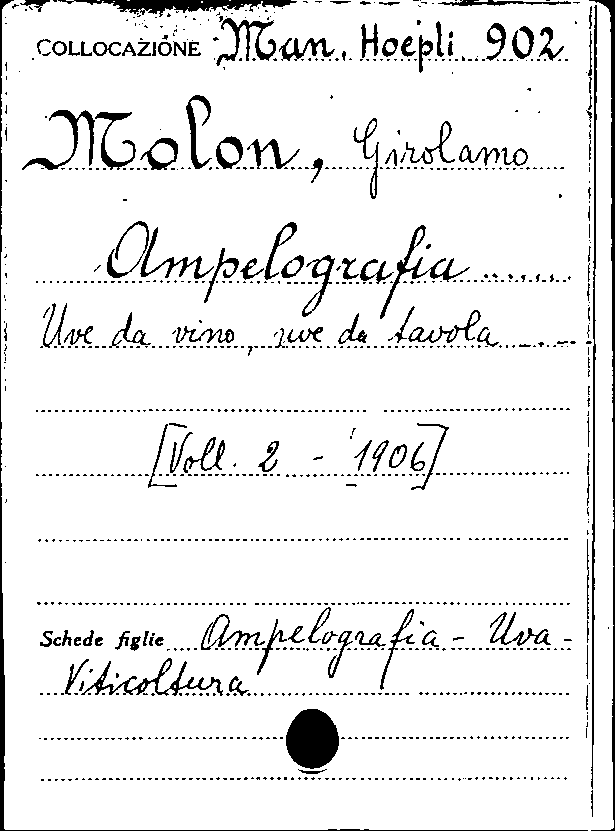 COLLOCAZIONE Man. Hoepli 902
Molon, Girolamo
Ampelografia ......
Uve da vino, uve da tavola
[Voll. 2 - 1906]
Schede figlie Ampelografia - Uva -
Viticoltura